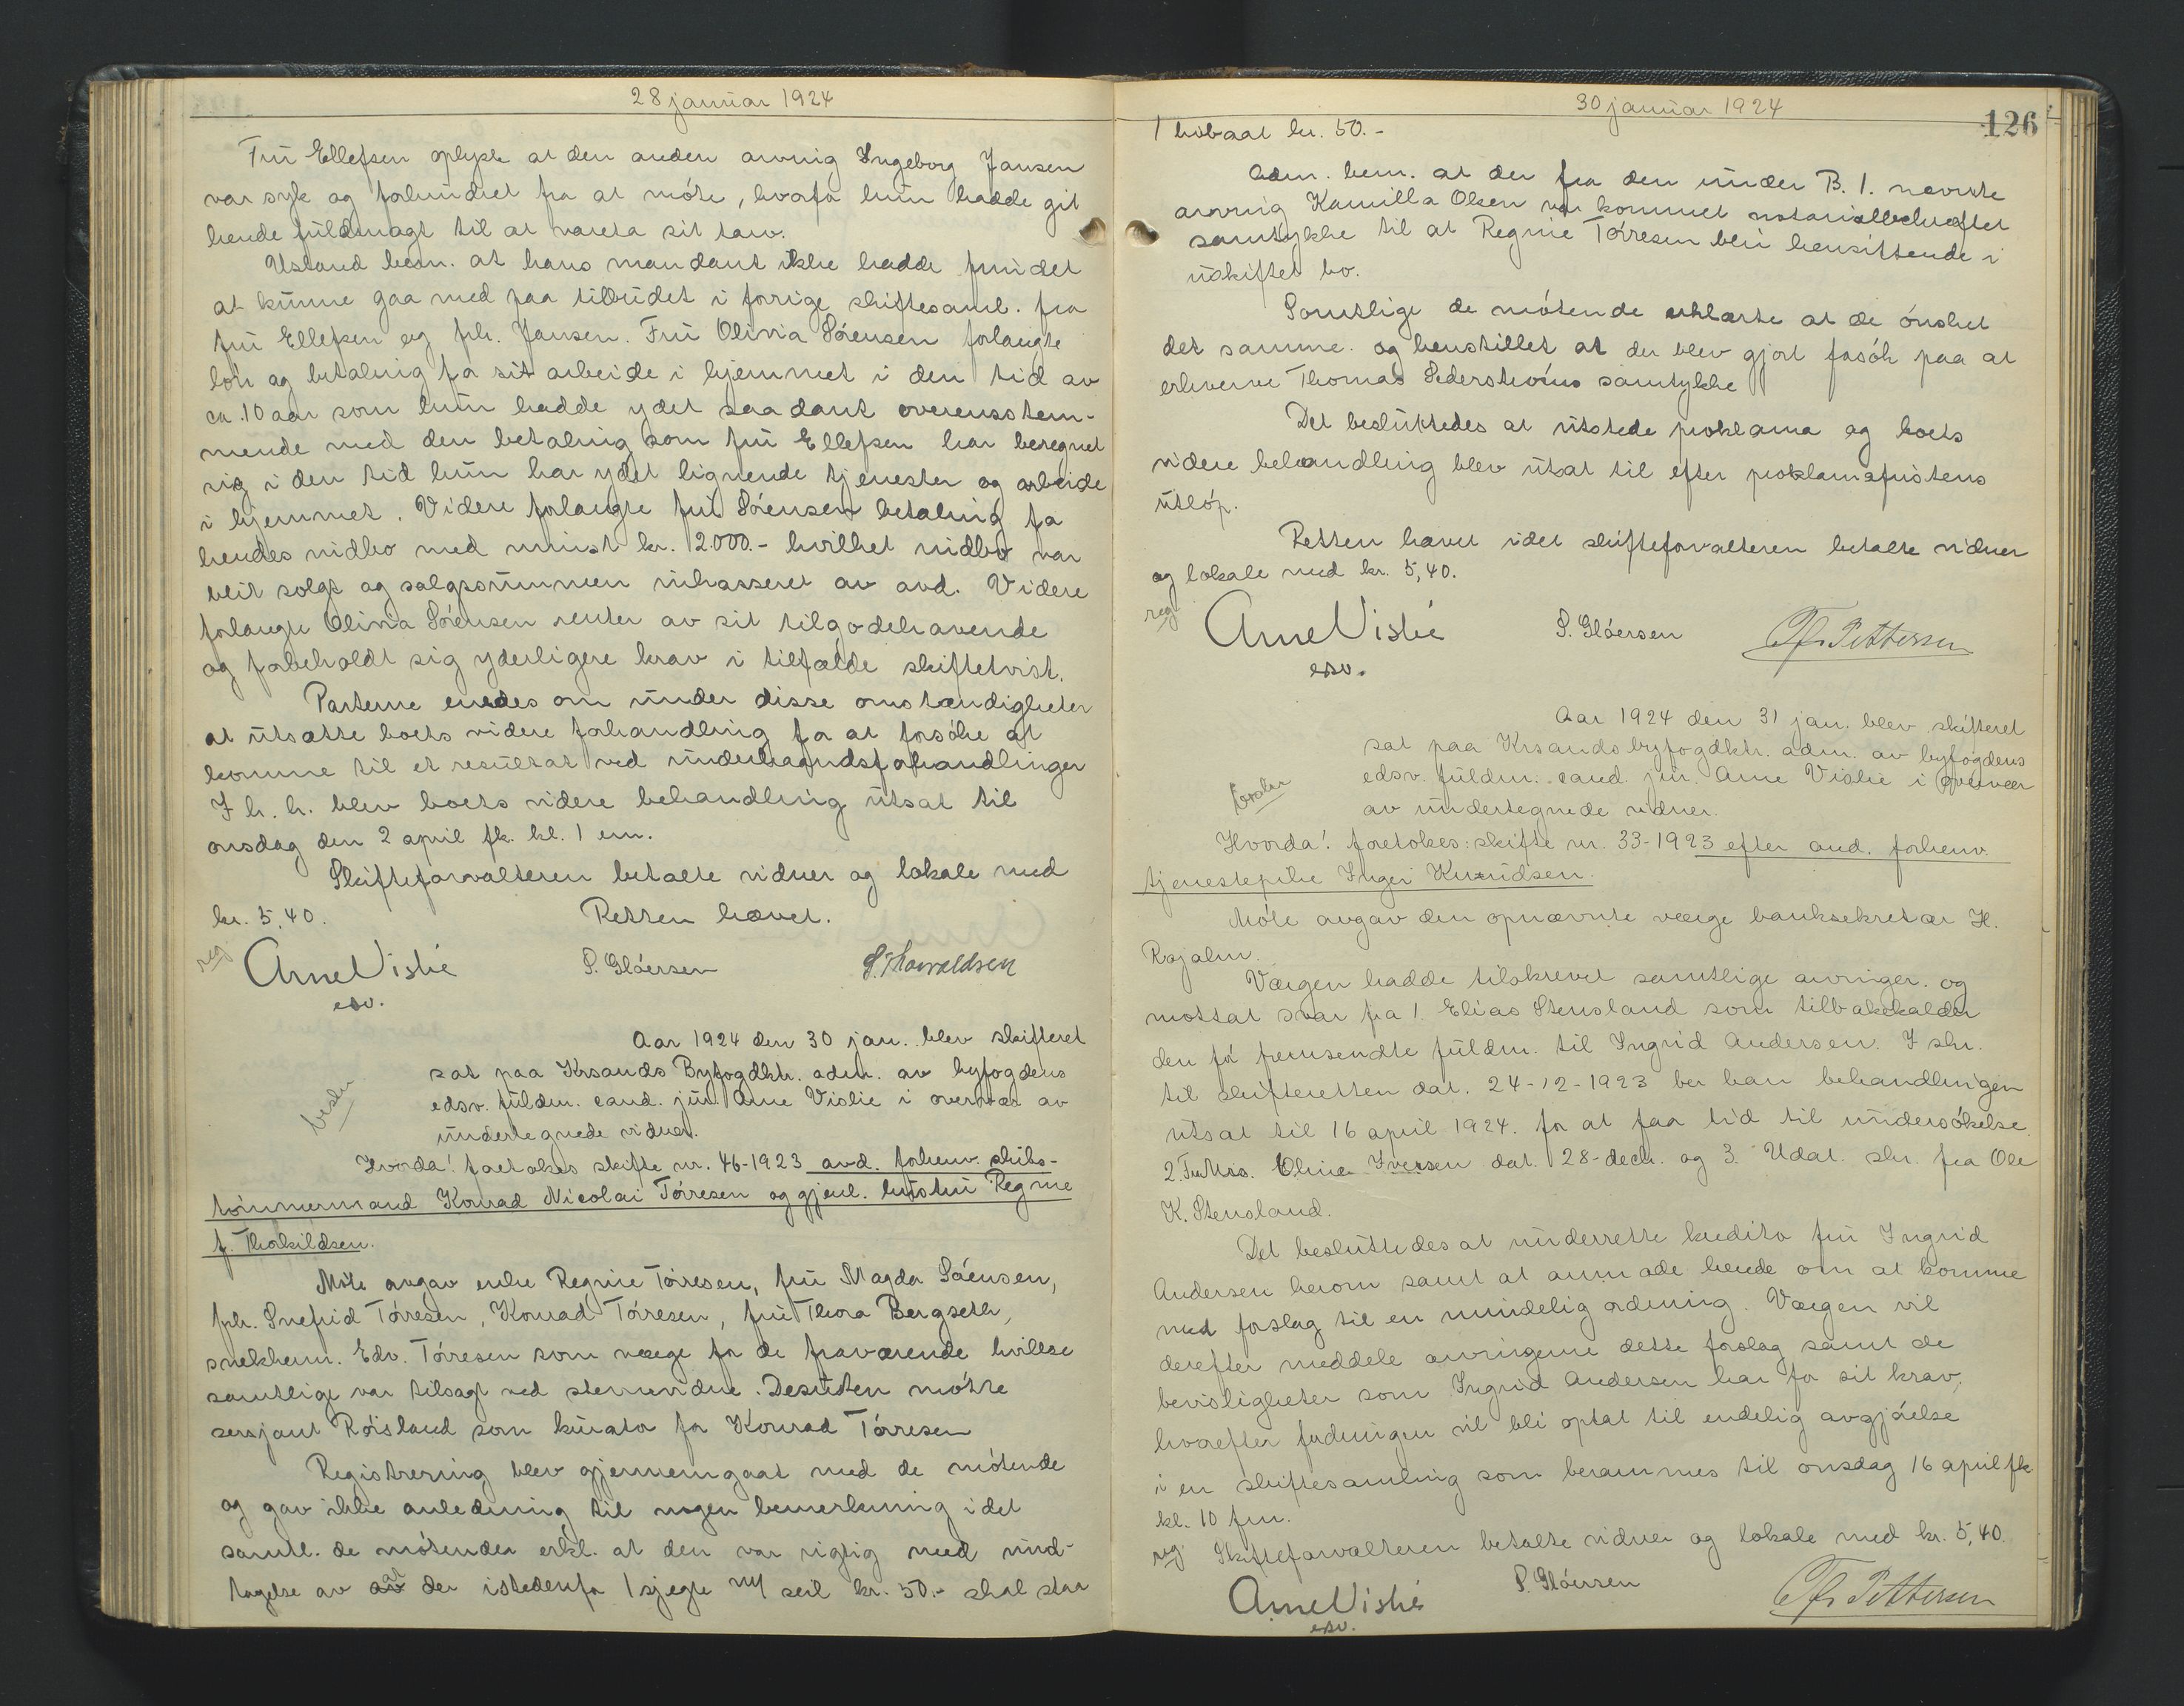 28 januar 1924
Fru Ellefsen oplyste at den anden arving Ingeborg Jansen
var syk og forhindret fra at møte, hvorfor hun hadde git
hende fuldmagt til at vareta sit tarv.
Ustand bem. at hans mandant ikke hadde fundet
at kunne gaa med paa tilbudet i forrige skiftesaml. fra
fru Ellefsen og frk. Jansen. Fru Olivia Sørensen forlangte
løn og betaling for sit arbeide i hjemmet i den tid av
ca. 10 aar som hun hadde ydet saadant overensstem-
mende med den betaling som fru Ellefsen har beregnet
sig i den tid hun har ydet lignende tjenester og arbeide
i hjemmet. Videre forlangte fru Sørensen betaling for
hendes indbo med minst kr. 2.000.- hvilket indbo var
blit solgt og salgssummen inkasseret av avd. Videre
forlangte Olivia Sørensen renter av sit tilgodehavende
og forbeholdt sig yderligere krav i tilfælde skiftetvist.
Parterne enedes om under disse omstændigheter
at utsætte boets videre forhandling for at forsøke at
komme til et resultat ved underhaandsforhandlinger
I h. h. blev boets videre behandling utsat til
onsdag den 2 april fk. kl. 1 em.
Skifteforvalteren betalte vidner og lokale med
kr. 5,40. Retten hævet.
reg Arne Vislie S. Gløersen S. Thorvaldsen
esv.
Aar 1924 den 30 jan. blev skifteret
sat paa Krsands Byfogdktr. adm. av byfogdens
beskr edsv. fuldm. cand. jur. Arne Vislie i overvær av
undertegnede vidner.
Hvorda! foretokes skifte nr. 46-1923 avd. forhenv. skibs-
tømmermand Konrad Nicolai Tørresen og gjenl. hustru Regine
f. Thorkildsen.
Møte avgav enke Regine Tørresen, fru Magda Sørensen,
frk. Snefrid Tørresen, Konrad Tørresen, fru Thora Bergseth,
snekkerm. Edv. Tørresen som værge for de fraværende hvilke
samtlige var tilsagt ved stevnevidne. Desuten møtte
sersjant Røisland som kurator for Konrad Tørresen
Registrering blev gjennemgaat med de møtende
og gav ikke anledning til nogen bemerkning idet
samtl. de møtende erkl. at den var rigtig med und-
tagelse av at der istedenfor 1 sjegte m/ seil kr. 50.- skal staa
30 januar 1924
126
1 kr. 50.-
Adm. bem. at der fra den under B. 1. nævnte
arving Kamilla Olsen var kommet notarialbekræftet
samtykke til at Regine Tørresen blir hensittende i
uskiftet bo.
Samtlige de møtende erklærte at de ønsket
det samme. og henstillet at der blev gjort forsøk paa at
erhverve Thomas Sederstrøms samtykke
Det besluttedes at utstede proklama og boets
videre behandling blev utsat til efter proklamafristens
utløp.
Retten hævet idet skifteforvalteren betalte vidner
og lokale med kr. 5,40.
reg Arne Vislie S. Gløersen Pettersen
esv.
Aar 1924 den 31 jan. blev skifteret
sat paa Krsands byfogdktr. adm. av byfogdens
beskr edsv. fuldm. cand. jur. Arne Vislie i overvær
av undertegnede vidner.
Hvorda! foretokes: skifte nr. 33-1923 efter avd. forhenv.
tjenestepike Inger Knudsen.
Møte avgav den opnævnte værge banksekretær H.
Rajalm.
Værgen hadde tilskrevet samtlige arvinger. og
mottat svar fra 1. Elias Stensland som tilbakekalder
den før fremsendte fuldm. til Ingrid Andersen. I skr.
til skifteretten dat. 24-12-1923 ber han behandlingen
utsat til 16 april 1924. for at faa tid til undersøkelse.
2. Oline Iversen dat. 28-decbr. og 3. Udat. skr. fra Ole
K. Stensland.
Det besluttedes at underrette kreditor fru Ingrid
Andersen herom samt at anmode hende om at komme
med forslag til en mindelig ordning. Værgen vil
derefter meddele arvingerne dette forslag samt de
bevisligheter som Ingrid Andersen har for sit krav,
hvorefter fordringen vil bli optat til endelig avgjørelse
i en skiftesamling som berammes til onsdag 16 april fk
kl. 10 fm.
reg. Skifteforvalteren betalte vidner og lokale med kr. 5,40.
Arne Vislie S. Gløersen Pettersen
esv.